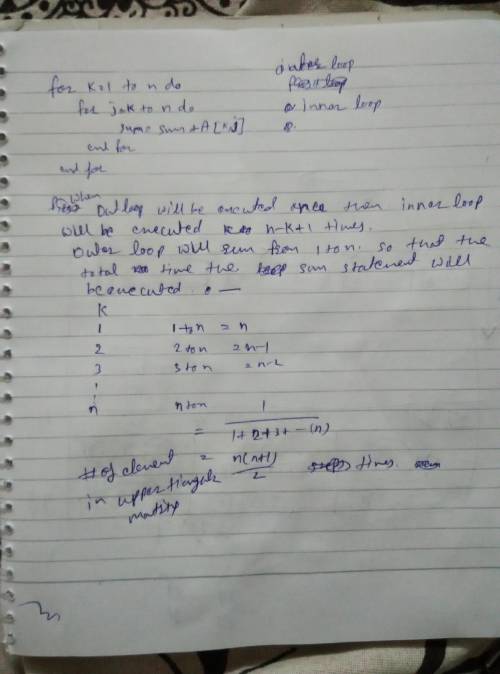 outer loop
for k=1 to n do
for j=k to n do
inner loop
sum = sum + A[k,j]
end for
end for
When
Out loop will be executed once then inner loop
will be executed n-k+1 times.
Outer loop will sum from 1 to n. so that the
total time the sum statement will
be executed. —
K
1 1 to n = n
2 2 to n = n-1
3 3 to n = n-2
n n to n 1
= 1+2+3+-(n)
# of element = n(n+1)/2 times.
in upper tiangular
matirx